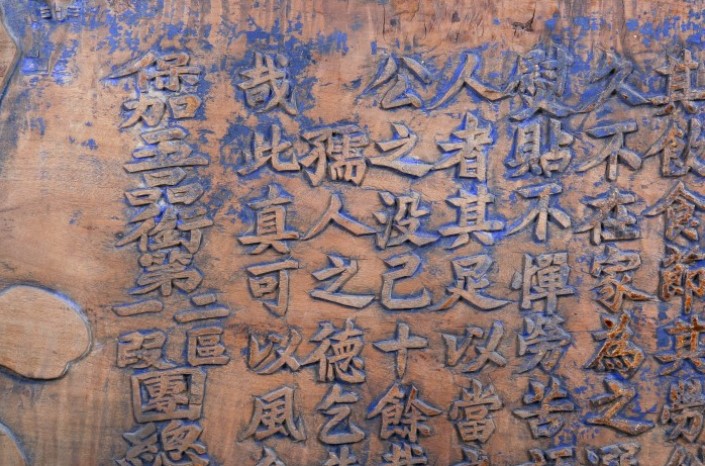 其飲食節其勞
久不在家為之
熨貼不憚勞苦
人者其足以當
公之没己十餘
孺人之德乞
哉此真可以風
保加品銜第二區一段團總